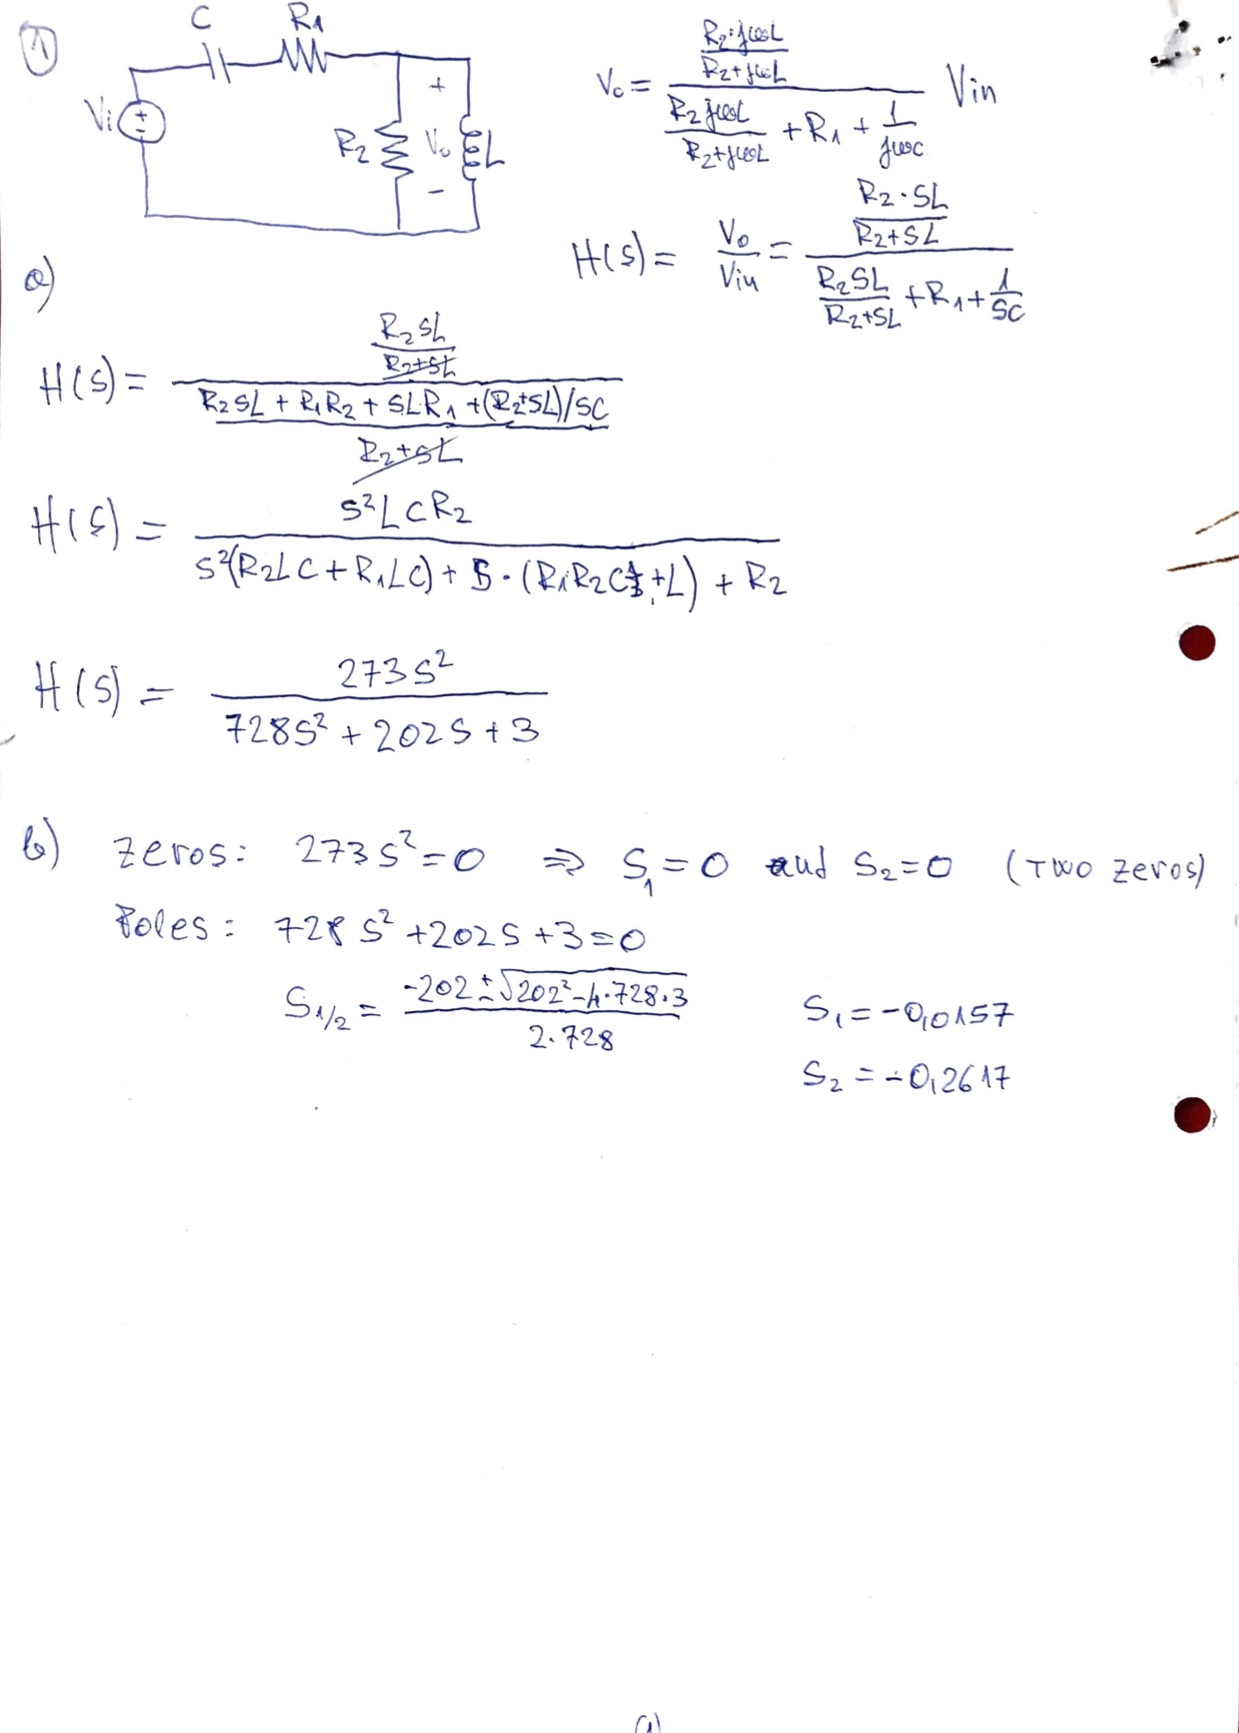 1
C R1
Vi + - R2 + Vo - L
Vo = (R2·jωL / (R2+jωL)) / (R2jωL / (R2+jωL) + R1 + 1/jωC) Vin
H(s) = Vo/Vin = (R2·SL / (R2+SL)) / (R2SL / (R2+SL) + R1 + 1/SC)
a)
H(s) = (R2SL / (R2+SL)) / ((R2SL + R1R2 + SLR1 + (R2+SL)/SC) / (R2+SL))
H(s) = S²LCR2 / (S²(R2LC + R1LC) + S·(R1R2C+L) + R2)
H(s) = 273S² / (728S² + 202S + 3)
b) zeros: 273S² = 0 ⇒ S1 = 0 and S2 = 0 (Two zeros)
Poles: 728S² + 202S + 3 = 0
S1/2 = (-202 ± √(202² - 4·728·3)) / (2·728)
S1 = -0,0157
S2 = -0,2617